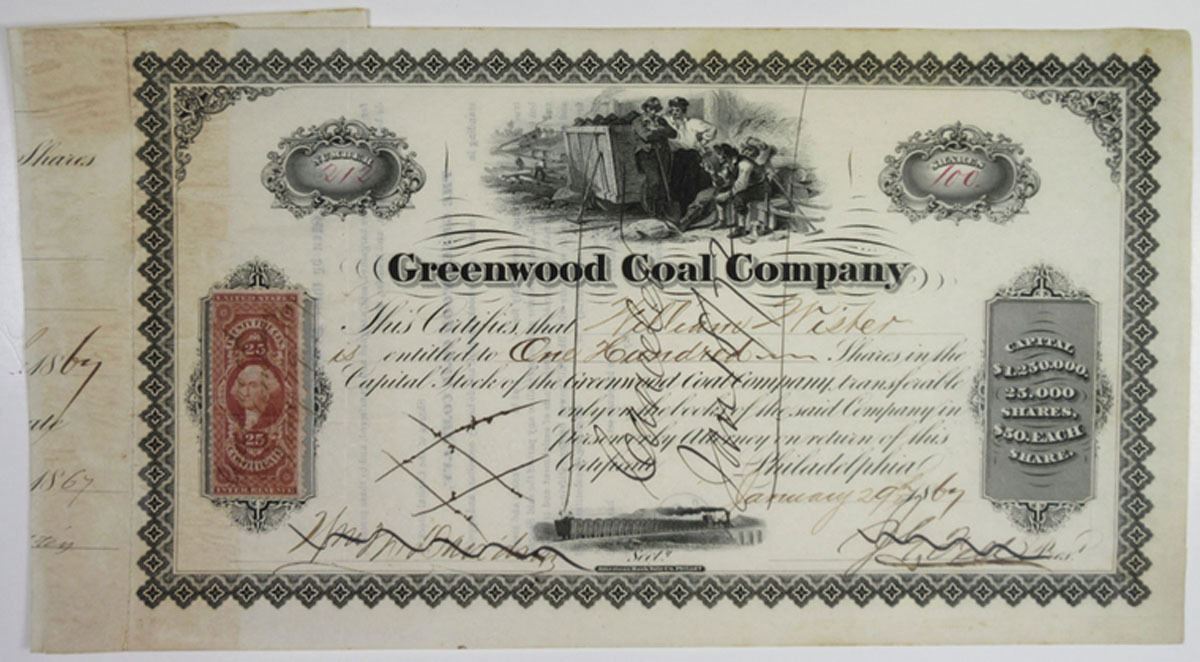 Shares
1867
1867
NUMBER
212
SHARES
100
Greenwood Coal Company
This Certifies, that William Wister
is entitled to One Hundred Shares in the
Capital Stock of the Greenwood Coal Company, transferable
only on the books of the said Company in
person or by Attorney on return of this
Certificate. Philadelphia
January 29th 1867
Cancelled
UNITED STATES
25
25
CERTIFICATE
INTER. REVENUE
CAPITAL
$1,250,000,
25,000
SHARES,
$50. EACH
SHARE.
Sect.y
Pres.t
American Bank Note Co. Philad.a